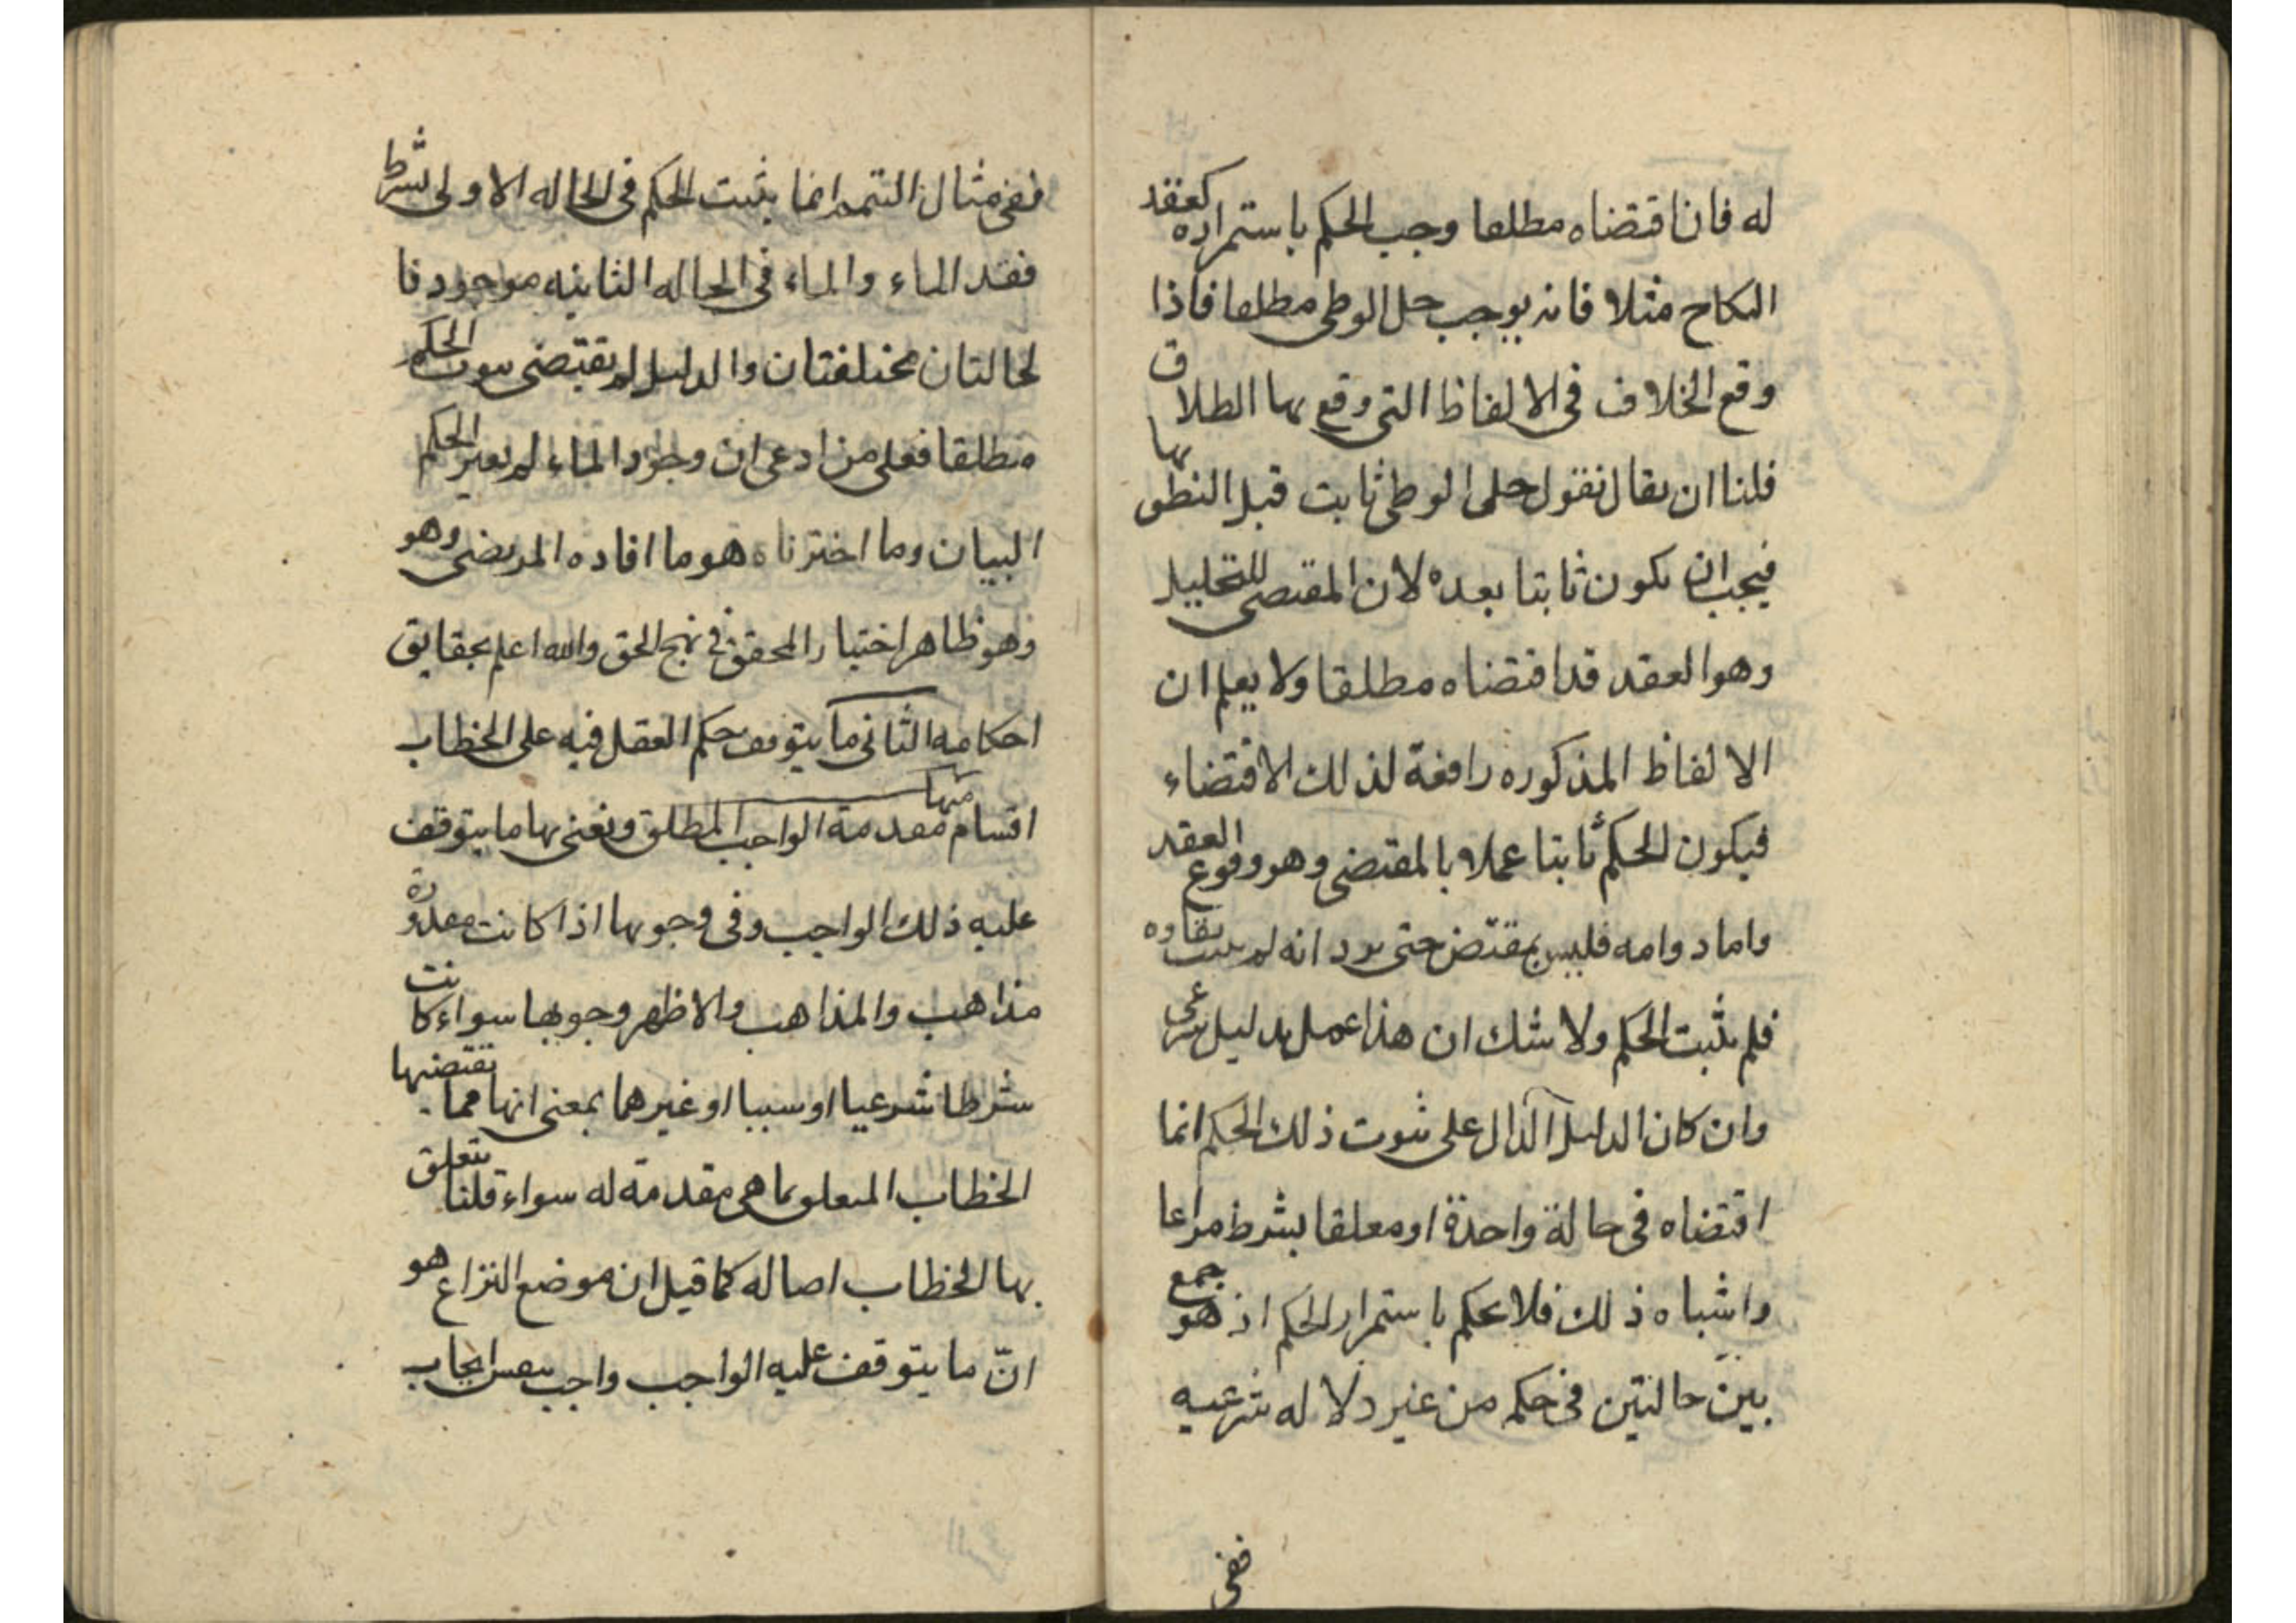 له فان اقتضاه مطلقا وجب الحكم باستمراره كعقد
النكاح مثلا فانه يوجب حل الوطى مطلقا فاذا
وقع الخلاف فى الالفاظ التى وقع بها الطلاق
فلنا ان يقال نقول حلى الوطى ثابت قبل النطق بها
فيجب ان يكون ثابتا بعده لان المقتضى للتحليل
وهو العقد قد اقتضاه مطلقا ولا يعلم ان
الالفاظ المذكوره رافعة لذلك الاقتضاء
فيكون الحكم ثابتا عملا بالمقتضى وهو وقوع العقد
واما دوامه فليس بمقتض حتى يرد انه لم يثبت بقاوه
فلم يثبت الحكم ولا شك ان هذا عمل بدليل شرعى
وان كان الدليل الدال على ثبوت ذلك الحكم انما
اقتضاه فى حالة واحدة او معلقا بشرط مراعا
واشباه ذلك فلا يحكم باستمرار الحكم اذ هو جمع
بين حالتين فى حكم من غير دلاله شرعيه
ففى
ففى مثال التيمم انما يثبت الحكم فى الحاله الاولى بشرط
فقد الماء والماء فى الحاله الثانيه موجود فا
لحالتان مختلفتان والدليل لم يقتضى ثبوت الحكم
مطلقا فعلى من ادعى ان وجود الماء لم يغير الحكم
البيان وما اخترناه هو ما افاده المرتضى وهو
وهو ظاهر اختيار المحقق فى نهج الحق والله اعلم بحقايق
احكامه الثانى ما يتوقف حكم العقل فيه على الخطاب
اقسام منها مقدمة الواجب المطلق ونعنى بها ما يتوقف
عليه ذلك الواجب وفى وجوبها اذا كانت مقدورة
مذاهب والمذاهب والاظهر وجوبها سواء كانت
شرطا شرعيا او سببا او غيرهما بمعنى انها مما يقتضيها
الخطاب المتعلق بما هى مقدمة له سواء قلنا يتعلق
بها الخطاب اصاله كما قيل ان موضع النزاع هو
انّ ما يتوقف عليه الواجب واجب بنفس ايجاب